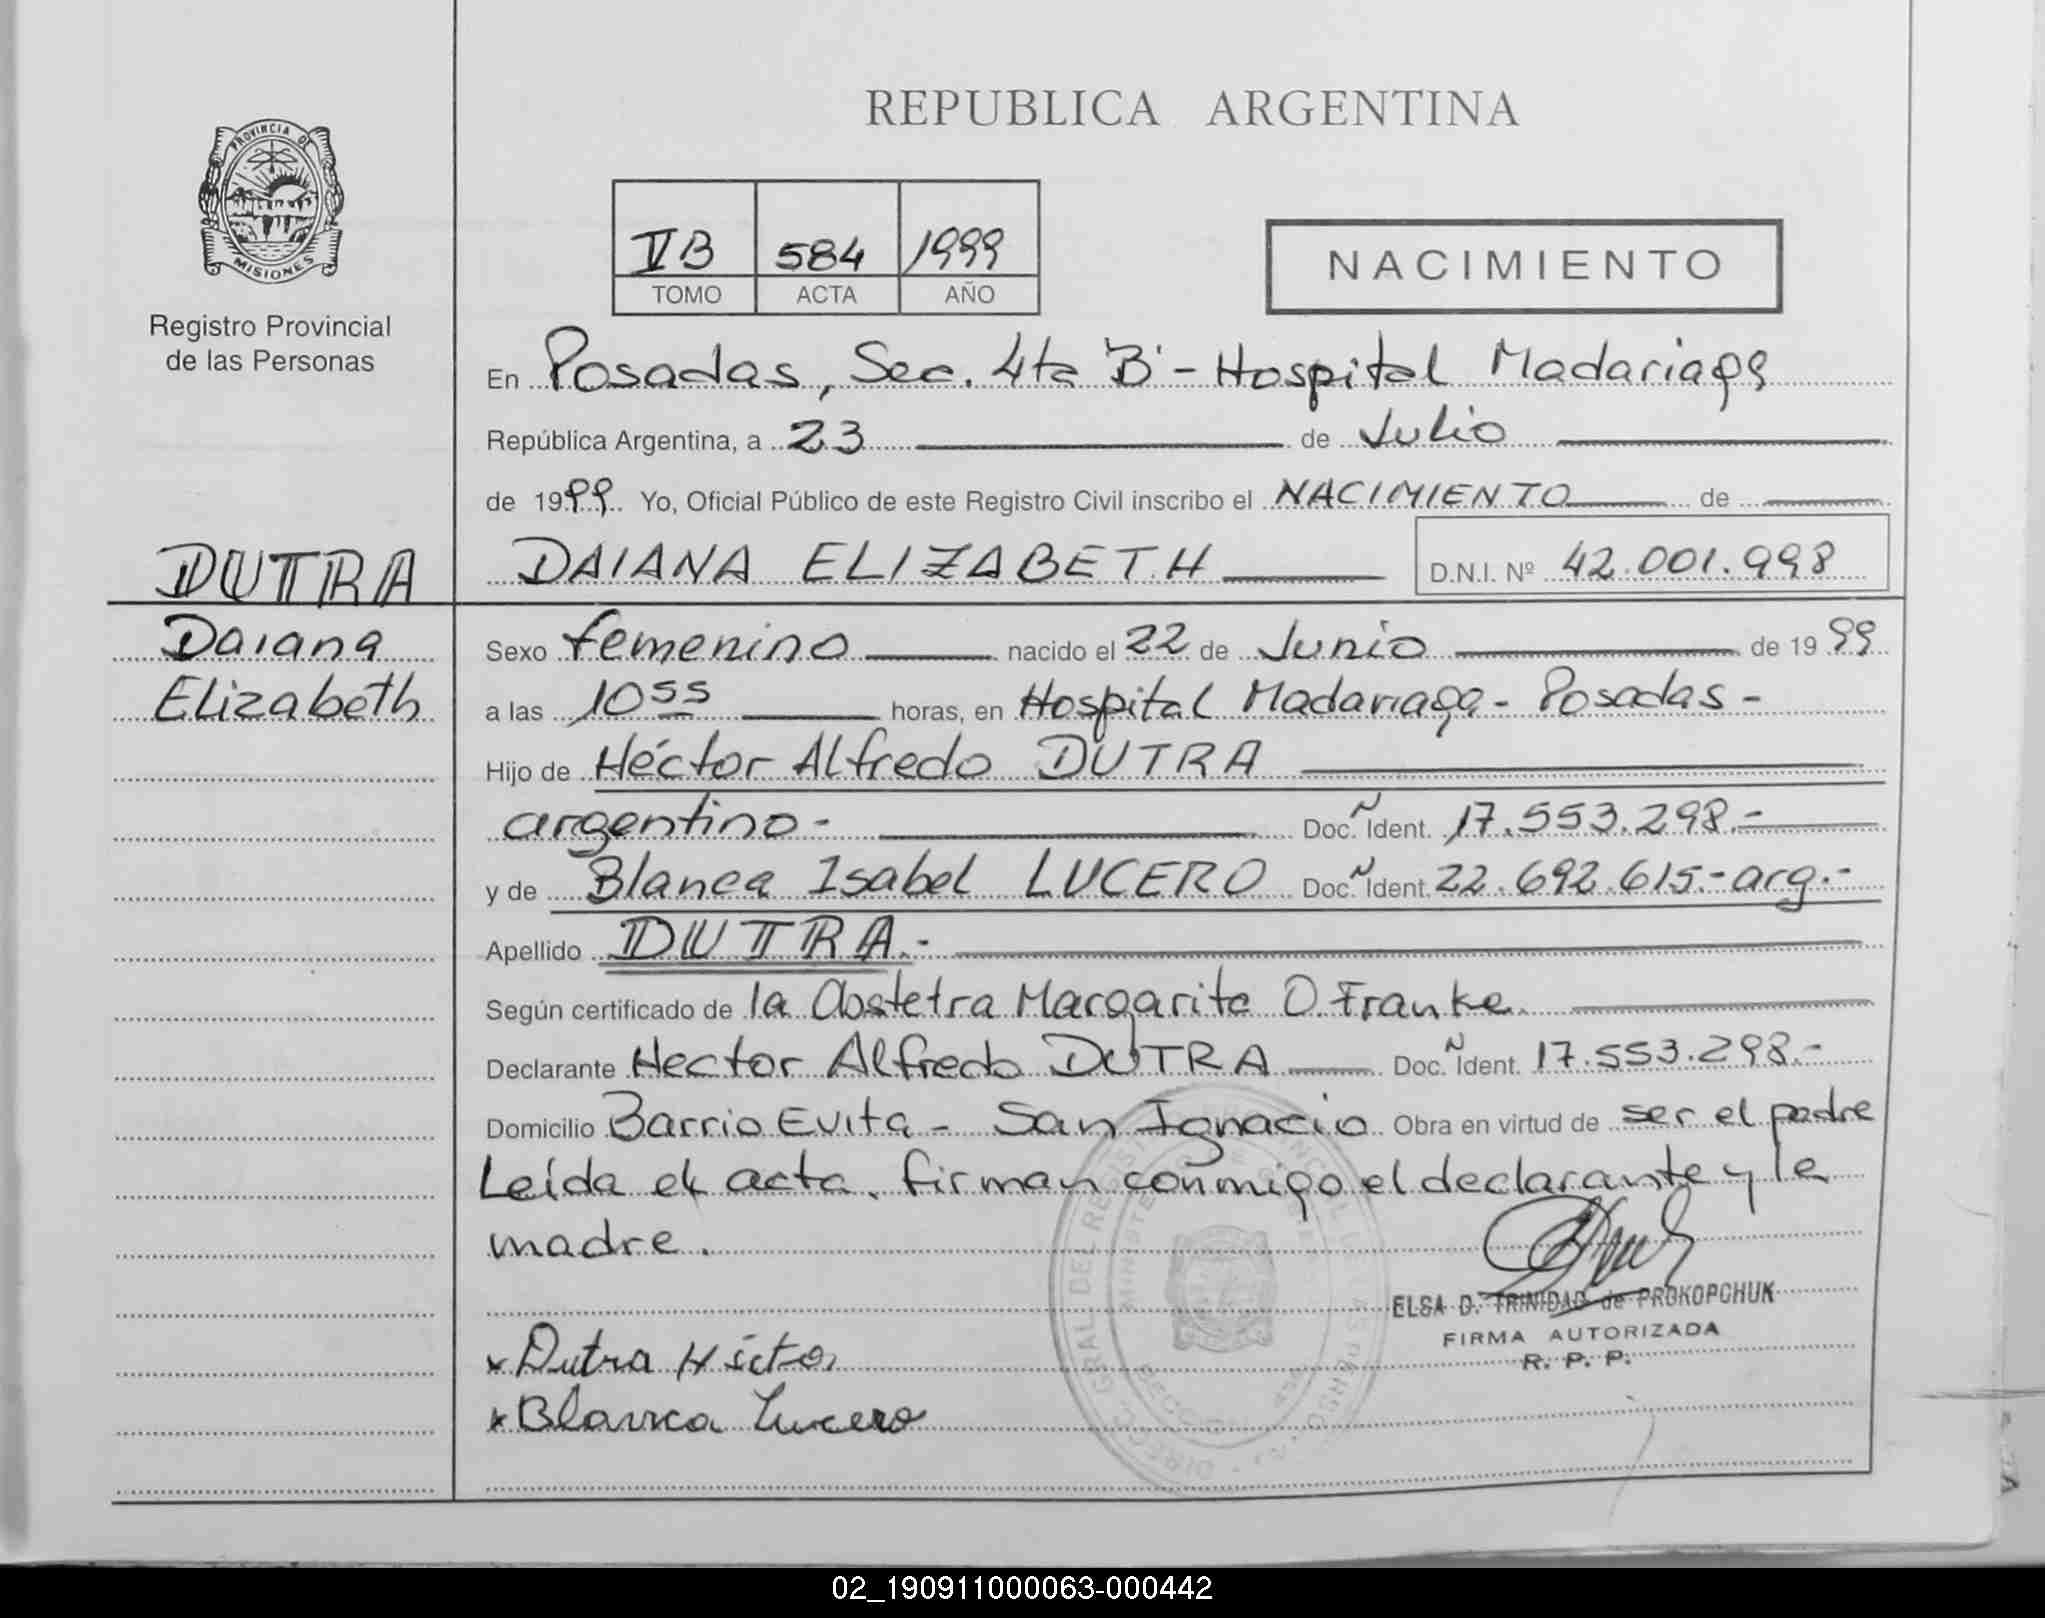 REPUBLICA ARGENTINA
PROVINCIA DE
MISIONES
Registro Provincial
de las Personas
VB 584 1999
TOMO ACTA AÑO
NACIMIENTO
En Posadas, Sec. 4ta "B" - Hospital Madariaga
República Argentina, a 23 de Julio
de 1999 Yo, Oficial Público de este Registro Civil inscribo el NACIMIENTO de
DUTRA
Daiana
Elizabeth
DAIANA ELIZABETH D.N.I. Nº 42.001.998
Sexo femenino nacido el 22 de Junio de 1999
a las 10 55 horas, en Hospital Madariaga - Posadas -
Hijo de Héctor Alfredo DUTRA
argentino - Doc. Ident. 17.553.298.-
y de Blanca Isabel LUCERO Doc. Ident. 22.692.615.- arg.-
Apellido DUTRA.-
Según certificado de la Obstetra Margarita O. Franke.
Declarante Hector Alfredo DUTRA Doc. Ident. 17.553.298.-
Domicilio Barrio Evita - San Ignacio Obra en virtud de ser el padre
Leída el acta, firman conmigo el declarante y la
madre.
ELSA D. TRINIDAD de PROKOPCHUK
FIRMA AUTORIZADA
R. P. P.
x Dutra Héctor
x Blanca Lucero
02_190911000063-000442